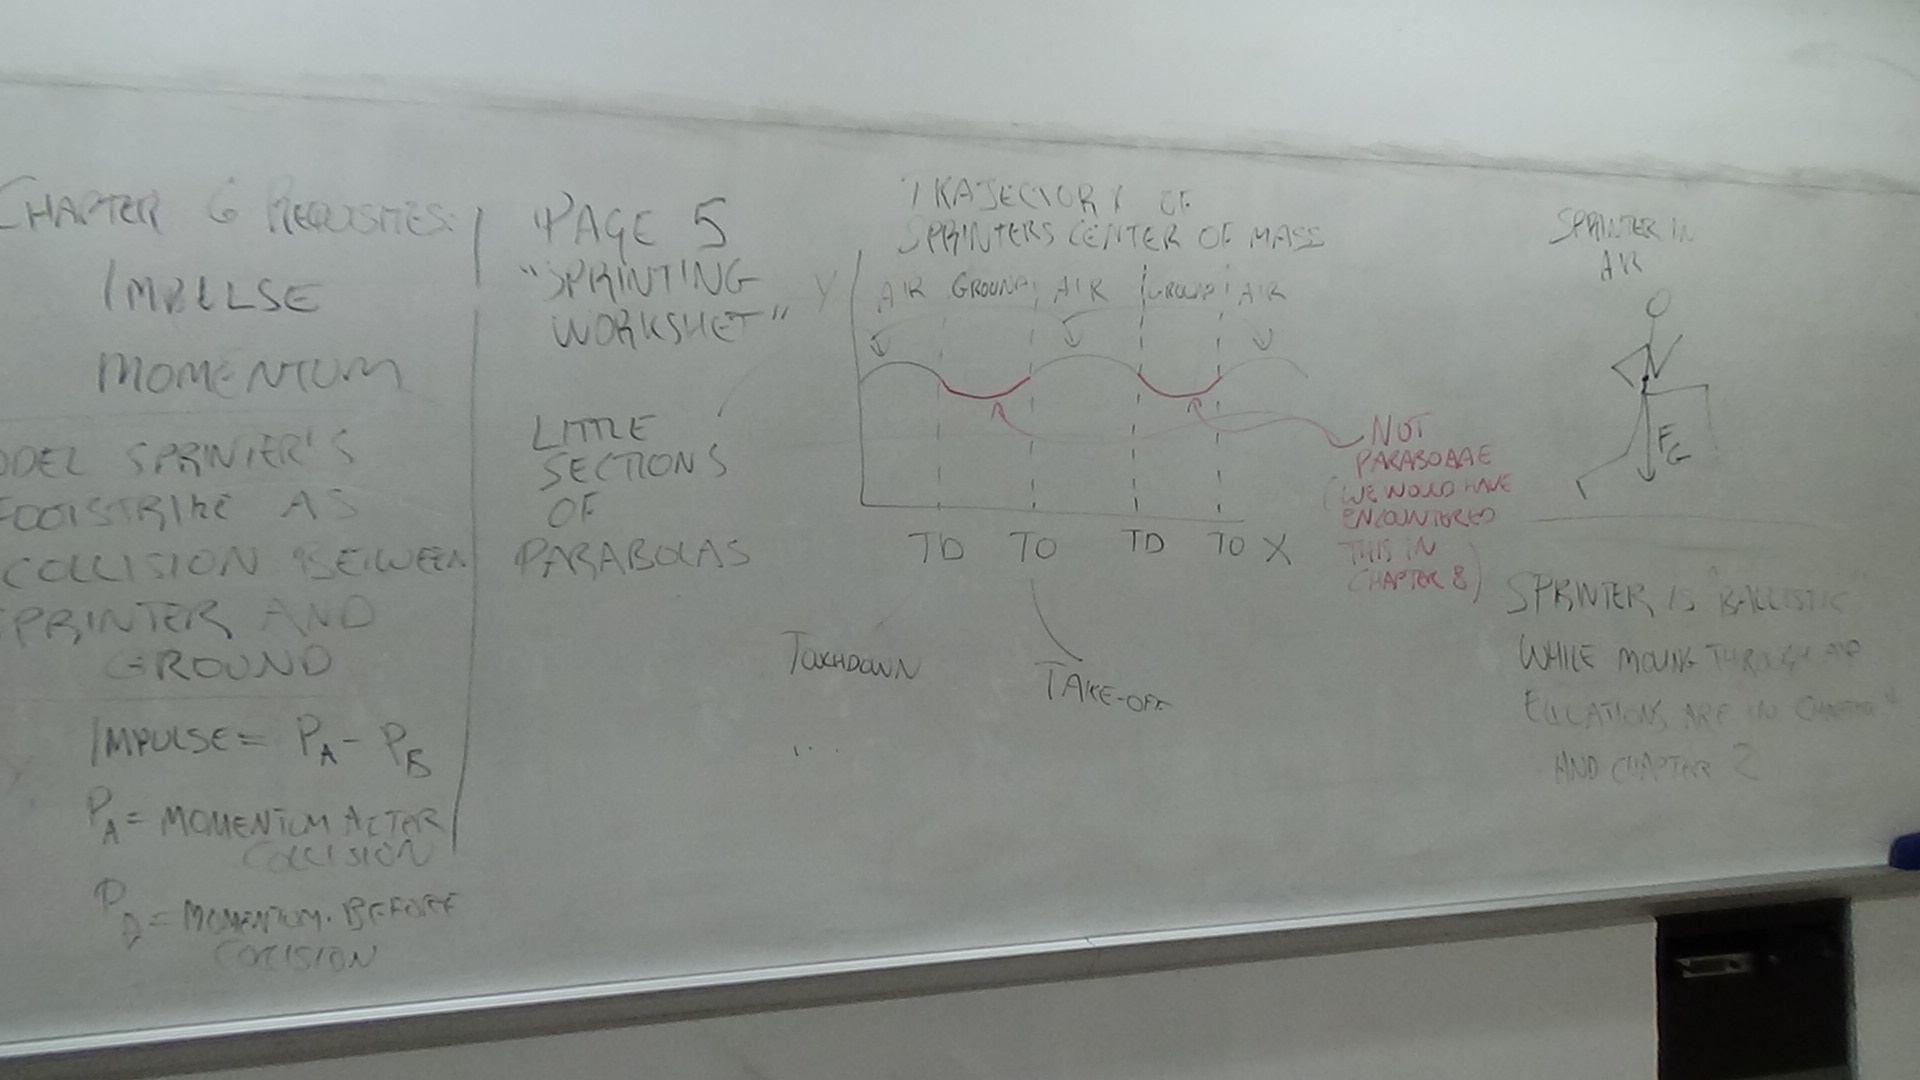 CHAPTER 6 REQUISITES:
IMPULSE
MOMENTUM
ODEL SPRINTER'S
FOOTSTRIKE AS
COLLISION BETWEEN
SPRINTER AND
GROUND
IMPULSE = PA - PB
PA = MOMENTUM AFTER
COLLISION
PB = MOMENTUM BEFORE
COLLISION
PAGE 5
"SPRINTING
WORKSHET"
LITTLE
SECTIONS
OF
PARABOLAS
TRAJECTORY OF
SPRINTERS CENTER OF MASS
Y
AIR GROUND AIR GROUND AIR
TD TO TD TO X
TOUCHDOWN
TAKE-OFF
...
NOT
PARABOLAE
(WE WOULD HAVE
ENCOUNTERED
THIS IN
CHAPTER 8)
SPRINTER IN
AIR
FG
SPRINTER IS "BALLISTIC"
WHILE MOVING THROUGH AIR
EQUATIONS ARE IN CHAPTER
AND CHAPTER 2